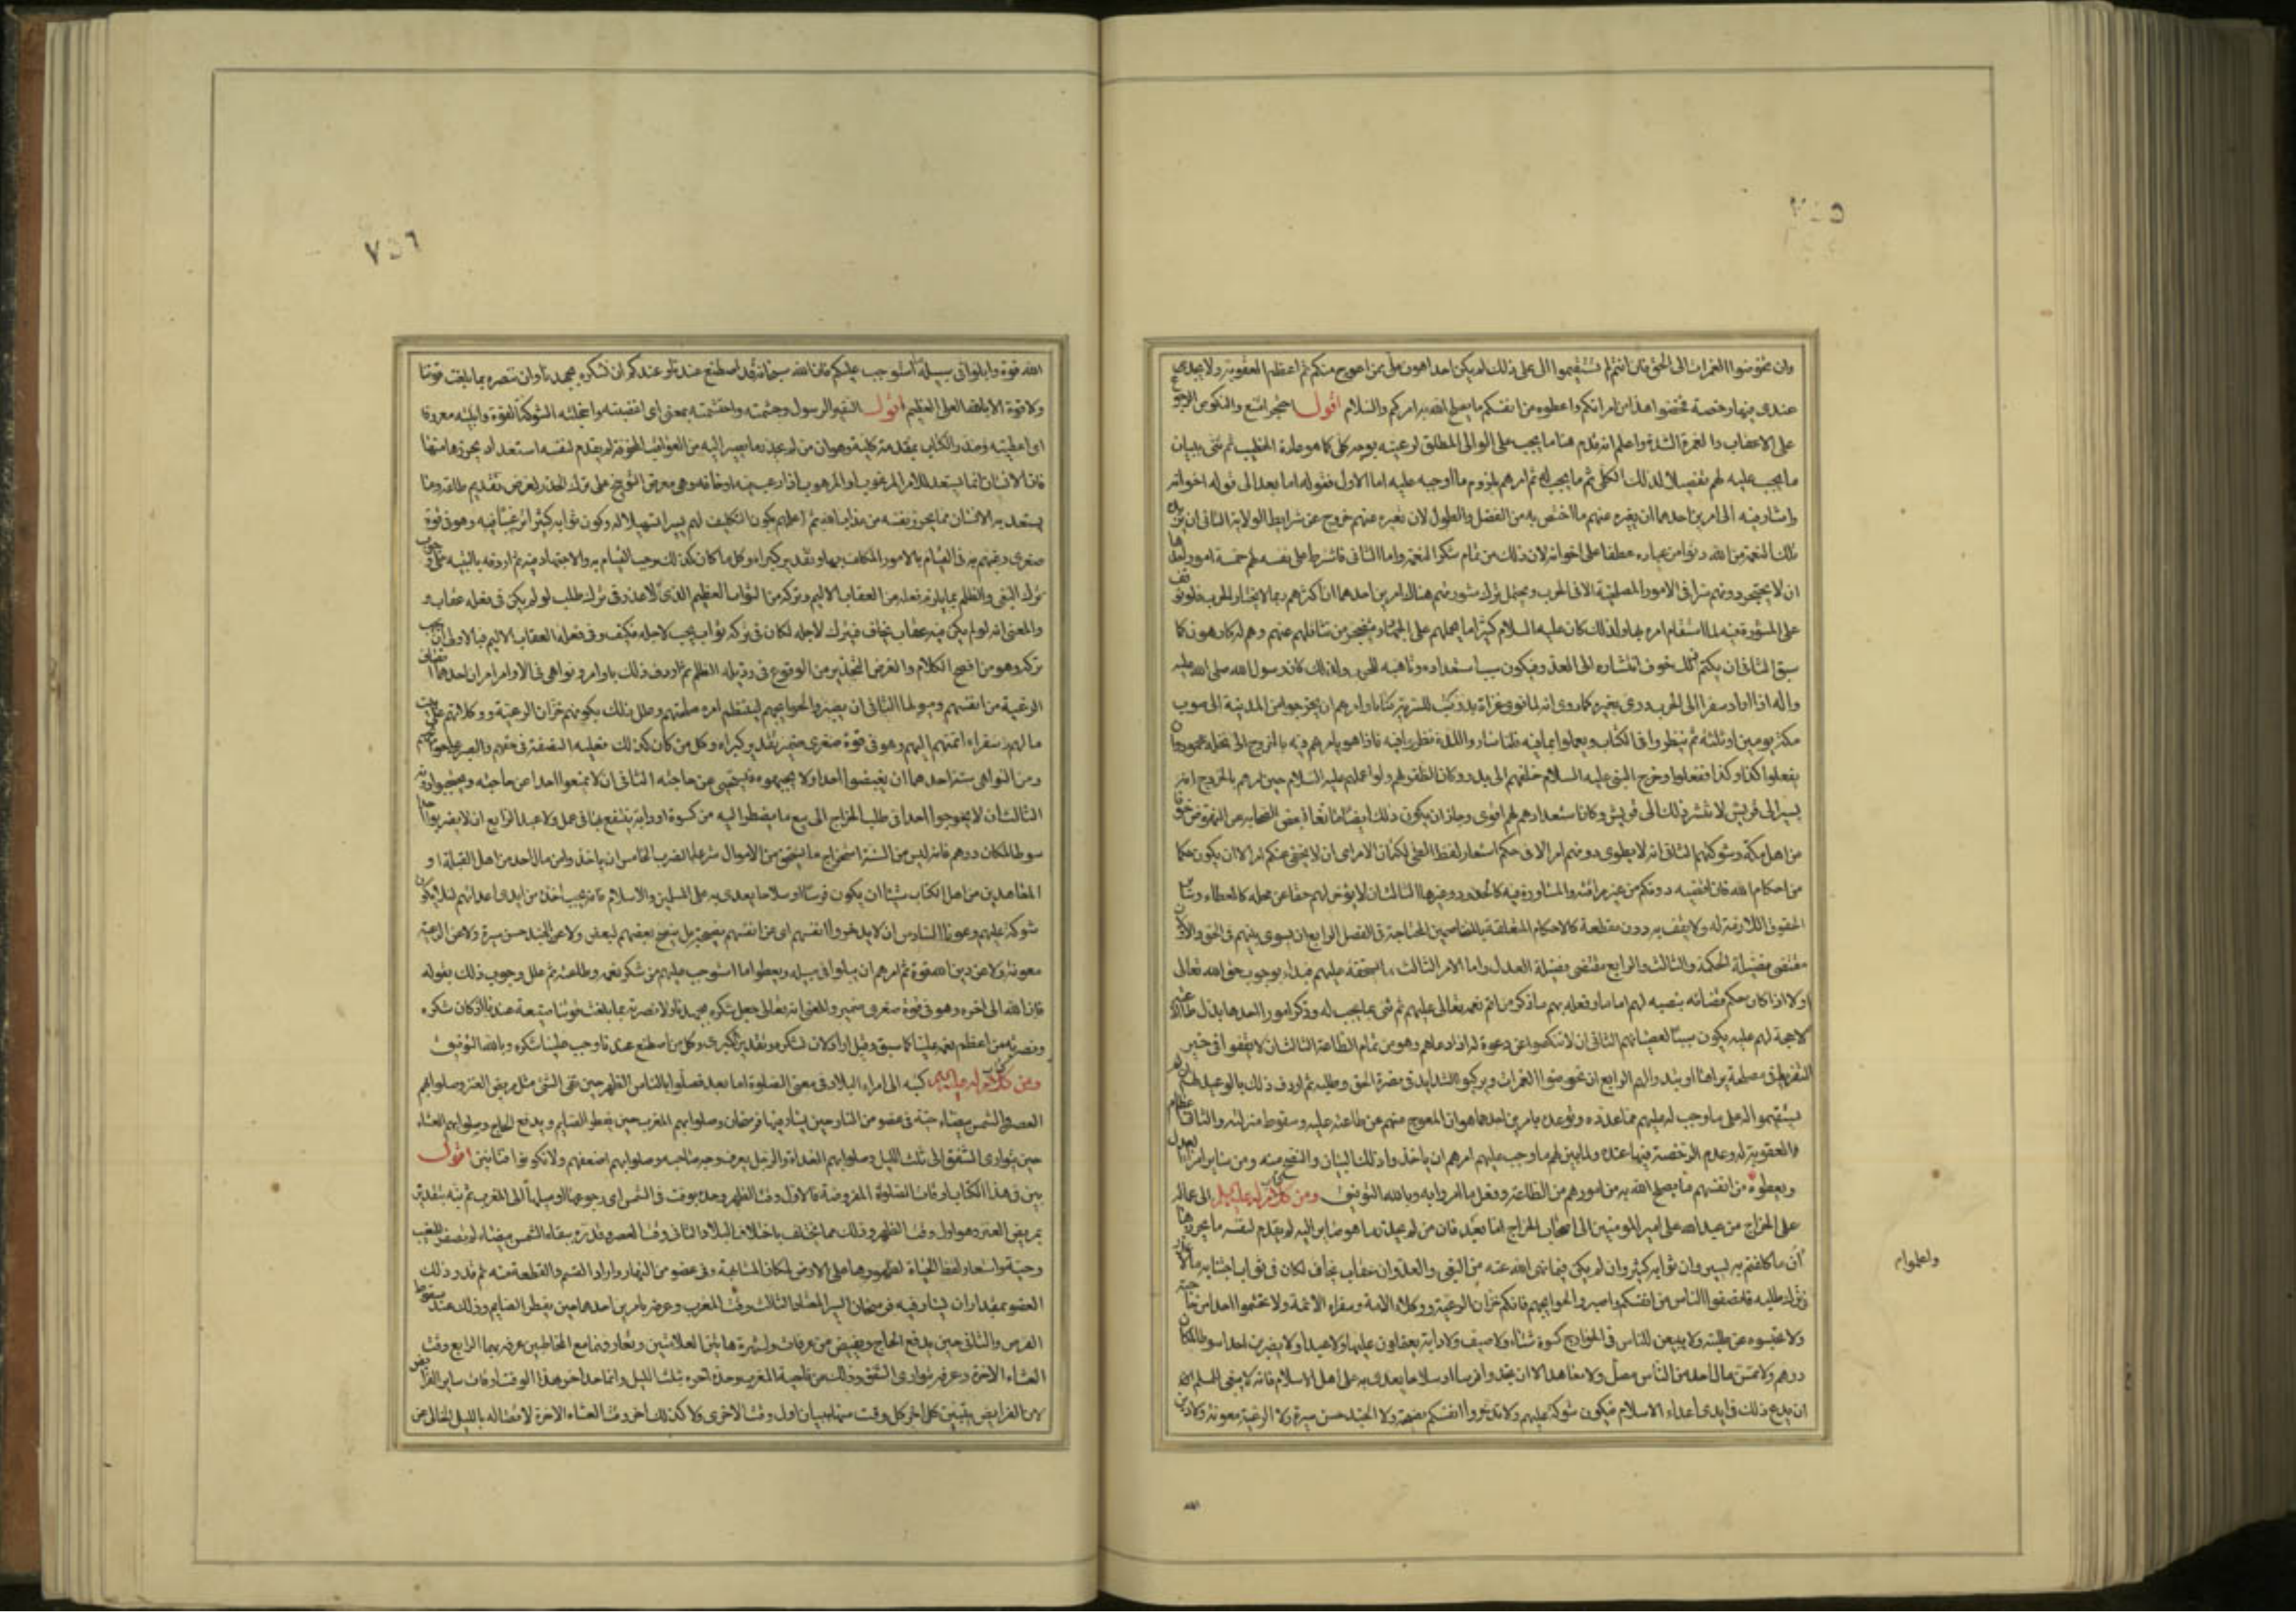 ٧٥٥
وان تخوضوا الغمرات الى الحق فان انتم لم تستقيموا الى على ذلك لم يكن احد اهون على ممن اعوج منكم ثم اعظم له العقوبة ولا يجد
عندى فيها رخصة فخذوا هذا من امرائكم واعطوه من انفسكم ما يصلح الله به امركم والسلام اقول احتجز امتنع والنكوص الرجوع
على الاعقاب والغمرة الشدة واعلم انه قدم هنا ما يجب على الوالى المطلق لرعيته بوجه كلى كما هو عادة الخطيب ثم ثنى ببيان
ما يجب عليه لهم تفصيلا لذلك الكلى ثم ما يجب له ثم امرهم بلزوم ما اوجبه عليه اما الاول فقوله اما بعد الى قوله اخوانه
واشار فيه الى امرين احدهما ان يغيره عنهم ما اختص به من الفضل والطول لان تغيره عنهم خروج عن شرايط الولاية الثانى ان
تلك النعمة من الله دنوا من عباده وعطفا على اخوانه لان ذلك من تمام شكر النعمة واما الثانى فاشترط على نفسه لهم خمسة امور احدها
ان لا يحتجز دونهم سرا فى الامور المصلحية الا فى الحرب ويحتمل ترك مشورتهم هناك امرين احدهما ان اكثرهم ربما لا يختار الحرب فلو توقف
على المشورة فيه لما استقام امره بها ولذلك كان عليه السلام كثيرا ما يحملهم على الجهاد ويتضجر من تثاقلهم عنهم وهم له كارهون كما
سبق الثانى ان يكتم ذلك خوف انتشاره الى العدو فيكون سبب استعداده وتأهبه للحرب ولذلك كان رسول الله صلى الله عليه
واله اذا اراد سفرا الى الحرب ورى بغيره كما روى انه لما نوى غزاة بدر كتب للسرية كتابا وامرهم ان يخرجوا من المدينة الى صوب
مكة يومين او ثلثة ثم ينظروا فى الكتاب ويعملوا بما فيه فلما ساروا المدة نظروا فيه فاذا هو يأمرهم فيه بالخروج الى نخلة محمود وان
يفعلوا كذا وكذا ففعلوا وخرج النبى عليه السلام خلفهم الى بدر وكان الظفر لهم ولو اعلمهم عليه السلام حين امرهم بالخروج انه
يسير الى قريش لانتشر ذلك الى قريش وكان استعدادهم لهم اقوى وجاز ان يكون ذلك ايضا مانعا لبعض الصحابة عن النهوض خوفا
من اهل مكة وشوكتهم الثانى انه لا يطوى دونهم امرا الا فى حكم استعار لفظ الطى لكتمان الامر اى ان لا يخفى عنكم امرا الا ان يكون حكما
من احكام الله فانى اقضيه دونكم من غير مراقبة والمشاورة فيه كالحدود وغيرها الثالث ان لا يؤخر لهم حقا عن محله كالعطاء وساير
الحقوق اللازمة له ولا يقف به دون مقطعه كالاحكام المتعلقة بالمتخاصمين المحتاجة الى الفصل الرابع ان يسوى بينهم فى الحق والاول
مقتضى فضيلة الحكمة والثالث والرابع مقتضى فضيلة العدل واما الامر الثالث ما يستحقه عليهم فبدأ بوجوب حق الله تعالى
اولا اذا كان حكم قضائه بنصبه لهم اماما وفعله بهم ما ذكر من اتم نعمه تعالى عليهم ثم ثنى بما يجب له وذكر امورا احدها بذل طاعته
لا حجة لهم عليه يكون سببا لعصيانهم الثانى ان لا ينكصوا عن دعوة له اذا دعاهم وهو من تمام الطاعة الثالث ان لا يفرطوا فى حيز
التفريط فى مصلحة يراها او يبدو لهم الرابع ان يخوضوا الغمرات ويركبوا الشدايد فى نصرة الحق وطلبه ثم اردف ذلك بالوعيد لهم ان لم
يستقيموا له على ما وجب له عليهم مما عدده وتوعد بامرين احدهما هوان المعوج منهم عن طاعته عليه وسقوط منزلته والثانى اعظام
العقوبة له وعدم الرخصة فيها عنده ولما بين لهم ما وجب عليهم امرهم ان ياخذوا ذلك البيان والنصح منه ومن ساير امراء العدل
ويعطوه من انفسهم ما يصلح الله به من امورهم من الطاعة وفعل ما امروا به وبالله التوفيق ومن كتاب له عليه السلام الى عماله
على الخراج من عبد الله على امير المؤمنين الى اصحاب الخراج اما بعد فان من لم يحذر ما هو صاير اليه لم يقدم لنفسه ما يحرزها
ان ما كلفتم به يسير وان ثوابه كثير وان لم يكن فيما نهى الله عنه من البغى والعدوان عقاب يخاف لكان فى ثواب اجتنابه ما لا عذر
فى ترك طلبه فانصفوا الناس من انفسكم واصبروا لحوائجهم فانكم خزان الرعية ووكلاء الامة وسفراء الائمة ولا تحشموا احدا عن حاجته
ولا تحبسوه عن طلبته ولا تبيعن للناس فى الخراج كسوة شتاء ولا صيف ولا دابة يعتملون عليها ولا عبدا ولا يضربن احدا سوطا لمكان
درهم ولا تمسن مال احد من الناس مصل ولا معاهد الا ان تجدوا فرسا او سلاحا يعدى به على اهل الاسلام فانه لا ينبغى للمسلم
ان يدع ذلك فى ايدى اعداء الاسلام فيكون شوكة عليهم ولا تدخروا انفسكم نصيحة ولا الجند حسن سيرة ولا الرعية معونة ولا دين
واعلموا
الله
٧٥٦
الله قوة وابلوا فى سبيله ما استوجب عليكم فان الله سبحانه قد اصطنع عندنا وعندكم ان نشكره بجهدنا وان ننصره بما بلغت قوتنا
ولا قوة الا بالله العلى العظيم اقول السفير الرسول وحشمته واحتشمته بمعنى اى اغضبته واخجلته الشوكة القوة وابليته معروفا
اى اعطيته وصدر الكتاب بمقدمة كلية وهو ان من لم يحذر ما يصير اليه من العواقب المخوفة لم يقدم لنفسه استعدادا يحرزها منها
فان الانسان انما يستعد للامر المرغوب او المرهوب اذا رغب فيه او خافه وهى معرض التوبيخ على ترك الحذر لغرض تقديم طاقة وما
يستعد به الانسان مما يحرز نفسه من عذاب الله ثم اعلمهم بكون التكليف لهم يسير تسهيلا له وكون ثوابه كثيرا ترغيبا فيه وهو فى قوة
صغرى رغبتهم به فى القيام بالامور المكلف بها وتقدير كبراه وكل ما كان كذلك وجب القيام به والاجتهاد فيه ثم اردفه بالتنبيه على وجوب
ترك البغى والظلم بما يلزم فعله من العقاب الاليم وتركه من الثواب العظيم الذى لا عذر فى ترك طلب لو لم يكن فى فعله عقاب
والمعنى انه لو لم يكن فيه عقاب يخاف فيترك لاجله لكان فى تركه ثواب يجب لاجله فكيف وفى فعله العقاب الاليم فبالاولى ان يجب
تركه وهو من افصح الكلام والغرض التحذير من الوقوع فى رذيلة الظلم ثم اردف ذلك باوامر ونواهى فى الاوامر امران احدهما
الرعية من انفسهم الثانى ان يصبروا لحوائجهم لينتظم امر مصلحتهم وعلل ذلك بكونهم خزان الرعية ووكلائهم على بيت
مالهم وسفراء ائمتهم اليهم وهو فى قوة صغرى ضمير تقدير كبراه وكل من كان كذلك فعليه النصفة فى حقهم والصبر على حوائجهم
ومن النواهى ستة احدها ان يغضبوا احدا ولا يجبهوه فيستحيى عن حاجته الثانى ان لا يمنعوا احدا عن حاجته ويحتجبوا دونه
الثالث ان لا يحوجوا احدا فى طلب الخراج الى بيع ما يضطر اليه من كسوة او دابة ينتفع بها فى عمل ولا عبد الرابع ان لا يضربوا احدا
سوطا لمكان درهم فانه ليس من السنة استخراج ما يستحق من الاموال شرعا بالضرب الخامس ان ياخذوا من مال احد من اهل القبلة او
المعاهدين من اهل الكتاب شيئا الا ان يكون فرسا او سلاحا يعدى به على المسلمين والاسلام فانه يجب اخذه من ايدى اعدائهم لئلا يكون
شوكة عليهم وعونا السادس ان لا يدخروا انفسهم اى عن انفسهم نصيحة بل ينصح بعضهم لبعض ولا عن الجند حسن سيرة ولا عن الرعية
معونة ولا عن دين الله قوة ثم امرهم ان يبلوا فى سبيله ويعطوا ما استوجب عليهم من شكر نعمه وطاعته ثم علل وجوب ذلك بقوله
فان الله الى اخره وهو فى قوة صغرى ضمير والمعنى انه تعالى جعل شكره بجهدنا ولا نصرته بما بلغت قوتنا صنيعة عندنا اذ كان شكره
ونصرته من اعظم نعمه علينا كما سبق وقيل اراد لان نشكره وتقدير الكبرى وكل من اصطنع عندنا وجب علينا شكره وبالله التوفيق
ومن كتاب له عليه السلام كتبه الى امراء البلاد فى معنى الصلوة اما بعد فصلوا بالناس الظهر حين تفى الشمس مثل مربض العنز وصلوا بهم
العصر والشمس بيضاء حية فى عضو من النهار حين يسار فيها فرسخان وصلوا بهم المغرب حين يفطر الصايم ويدفع الحاج وصلوا بهم العشاء
حين يتوارى الشفق الى ثلث الليل وصلوا بهم الغداة والرجل يعرف وجه صاحبه وصلوا بهم صلوة اضعفهم ولا تكونوا فتانين اقول
بين فى هذا الكتاب اوقات الصلوة المفروضة فالاول وقت الظهر وحده بوقت فىء الشمس اى رجوعها وميلها الى المغرب ثم نبه بتقدير
بمربض العنز وهو اول وقت الظهر وذلك مما يختلف باختلاف البلاد والثانى وقت العصر وقدره ببقاء الشمس بيضاء لم تصفر للمغيب
وحية واستعار لفظ الحياة لظهورها على الارض لمكان المشابهة وفى عضو من النهار واراد القسم والقطعة منه ثم قدر ذلك
العضو بمقدار ان يسار فيه فرسخان السير المعتاد الثالث وقت المغرب وعرفه بامرين احدهما حين يفطر الصايم وذلك عند سقوط
القرص والثانى حين يدفع الحاج ويفيض من عرفات ولشهرة هاتين العلامتين وتعارفهما مع المخاطبين عرفه بهما الرابع وقت
العشاء الاخرة وعرفه بتوارى الشفق وذلك من ناحية المغرب وحد اخره بثلث الليل وانما حد اخر هذا الوقت دون اوقات ساير الفرايض
لان الفرايض يتبين كل اخر كل وقت منها ببيان اول وقت الاخرى ولا كذلك اخر وقت العشاء الاخرة لاتصاله بالليل الخالى عن